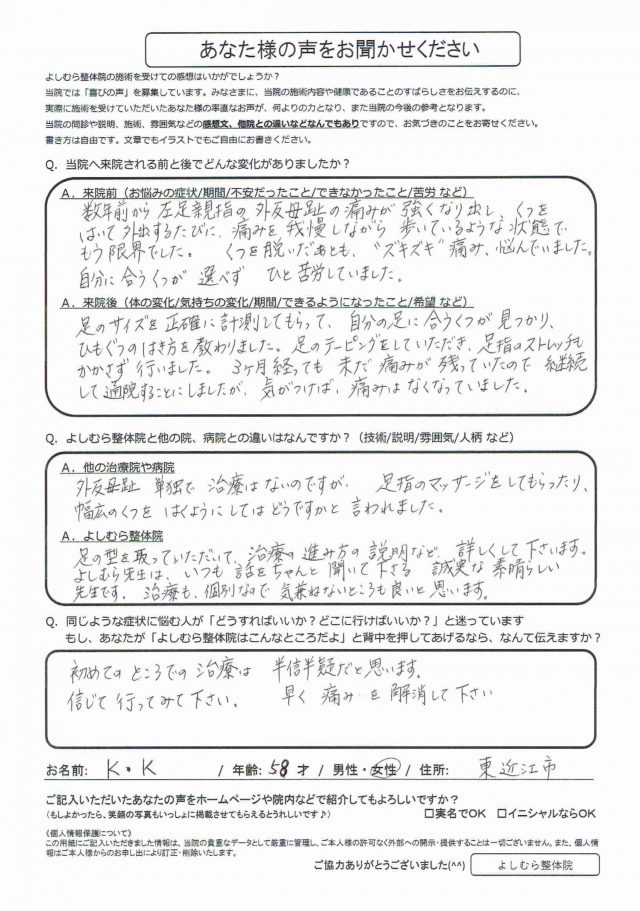 あなた様の声をお聞かせください
よしむら整体院の施術を受けての感想はいかがでしょうか？
当院では「喜びの声」を募集しています。みなさまに、当院の施術内容や健康であることのすばらしさをお伝えするのに、
実際に施術を受けていただいたあなた様の率直なお声が、何よりの力となり、また当院の今後の参考となります。
当院の問診や説明、施術、雰囲気などの感想文、他院との違いなどなんでもありですので、お気づきのことをお寄せください。
書き方は自由です。文章でもイラストでもご自由にお書きください。
Q. 当院へ来院される前と後でどんな変化がありましたか？
A. 来院前（お悩みの症状/期間/不安だったこと/できなかったこと/苦労 など）
数年前から左足親指の外反母趾の痛みが強くなり出し、くつを
はいて外出するたびに、痛みを我慢しながら歩いているような状態で
もう限界でした。くつを脱いだあとも、"ズキズキ"痛み、悩んでいました。
自分に合うくつが選べず ひと苦労していました。
A. 来院後（体の変化/気持ちの変化/期間/できるようになったこと/希望 など）
足のサイズを正確に計測してもらって、自分の足に合うくつが見つかり、
ひもぐつのはき方を教わりました。足のテーピングをしていただき、足指のストレッチも
かかさず行いました。3ヶ月経っても未だ痛みが残っていたので継続
して通院することにしましたが、気がつけば、痛みはなくなっていました。
Q. よしむら整体院と他の院、病院との違いはなんですか？（技術/説明/雰囲気/人柄 など）
A. 他の治療院や病院
外反母趾 単独で治療はないのですが、足指のマッサージをしてもらったり、
幅広のくつをはくようにしてはどうですかと言われました。
A. よしむら整体院
足の型を取っていただいて、治療の進み方の説明など、詳しくして下さいます。
よしむら先生は、いつも話をちゃんと聞いて下さる 誠実な素晴らしい
先生です。治療も、個別なので気兼ねないところも良いと思います。
Q. 同じような症状に悩む人が「どうすればいいか？どこに行けばいいか？」と迷っています
もし、あなたが「よしむら整体院はこんなところだよ」と背中を押してあげるなら、なんて伝えますか？
初めてのところでの治療は 半信半疑だと思います。
信じて行ってみて下さい。 早く痛みを解消して下さい
お名前: K・K / 年齢: 58 才 / 男性・女性 / 住所: 東近江市
ご記入いただいたあなたの声をホームページや院内などで紹介してもよろしいですか？
（もしよかったら、笑顔の写真もいっしょに掲載させてもらえるとうれしいです♪） □実名でOK □イニシャルならOK
《個人情報保護について》
この用紙にご記入いただきました情報は、当院の貴重なデータとして厳重に管理し、ご本人様の許可なく外部への開示・提供することは一切ございません。また、個人情
報はご本人様からのお申し出により訂正・削除いたします。
ご協力ありがとうございました(^^) よしむら整体院